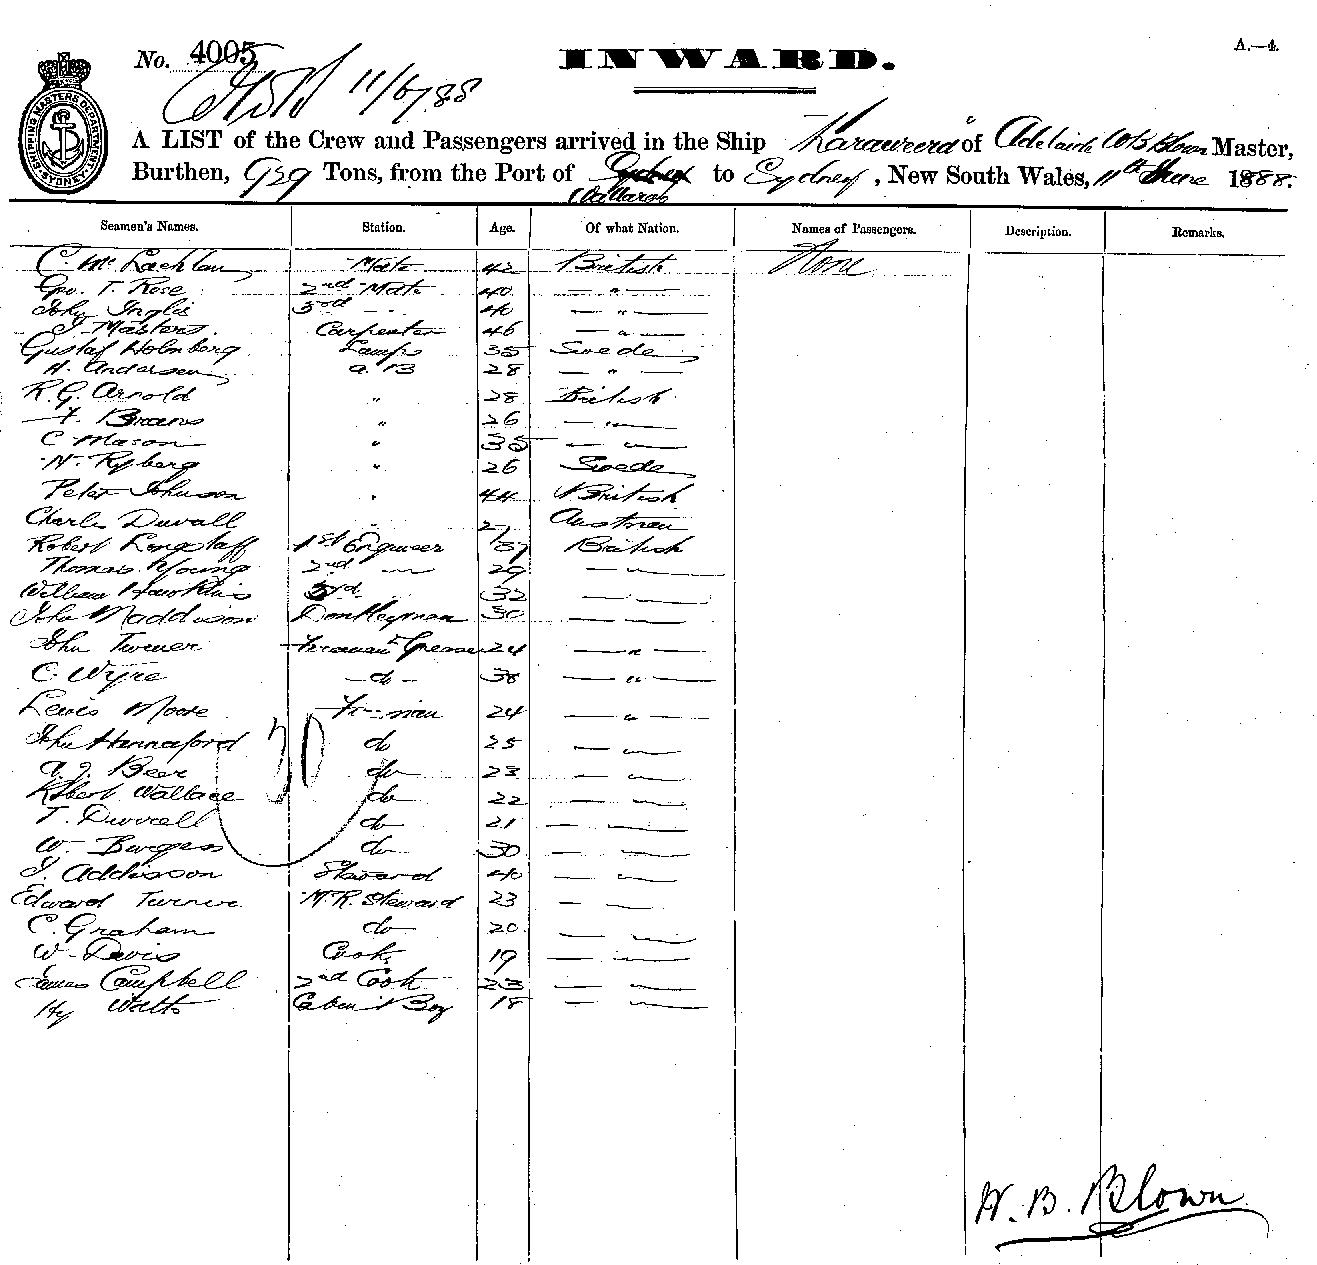 A.—4.
No. 4005
INWARD.
11/6/88
A LIST of the Crew and Passengers arrived in the Ship Karaweera of Adelaide W B Blown Master,
Burthen, 939 Tons, from the Port of Sydney to Sydney, New South Wales, 11th June 1888.
Ballarat
SHIPPING MASTERS DEPARTMENT SYDNEY
Seamen's Names. Station. Age. Of what Nation. Names of Passengers. Description. Remarks.
C. McLachlan Mate 42 British None
Geo. T. Rose 2nd Mate 40 "
John Inglis 3rd " 40 "
J. Masters Carpenter 46 "
Gustaf Holmberg Lamps 35 Swede
H. Andersen A. B 28 "
R. G. Arnold " 28 British
F. Brans " 26 "
C Mason " 35 "
N. Ryberg " 26 Swede
Peter Johnson " 44 British
Charles Duvall 27 Austrian
Robert Longstaff 1st Engineer 37 British
Thomas Young 2nd " 29 "
William Hawkins 3rd 32 "
John Maddison Donkeyman 30 "
John Turner Fireman & Greaser 24 "
C. Wyre do 38 "
Lewis Moore Fireman 24 "
John Hannaford do 25 "
A. J. Beer do 23 "
Robert Wallace do 22 "
T. Durrell do 21 "
W. Burgess do 30 "
J. Addisson Steward 40 "
Edward Turner M.R. Steward 23 "
C. Graham do 20 "
W. Davis Cook 19 "
James Campbell 2nd Cook 23 "
Hy Watts Cabin Boy 18 "
30
W. B. Blown